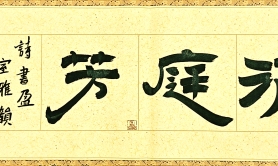 庭芳
詩書盈
室雅韻